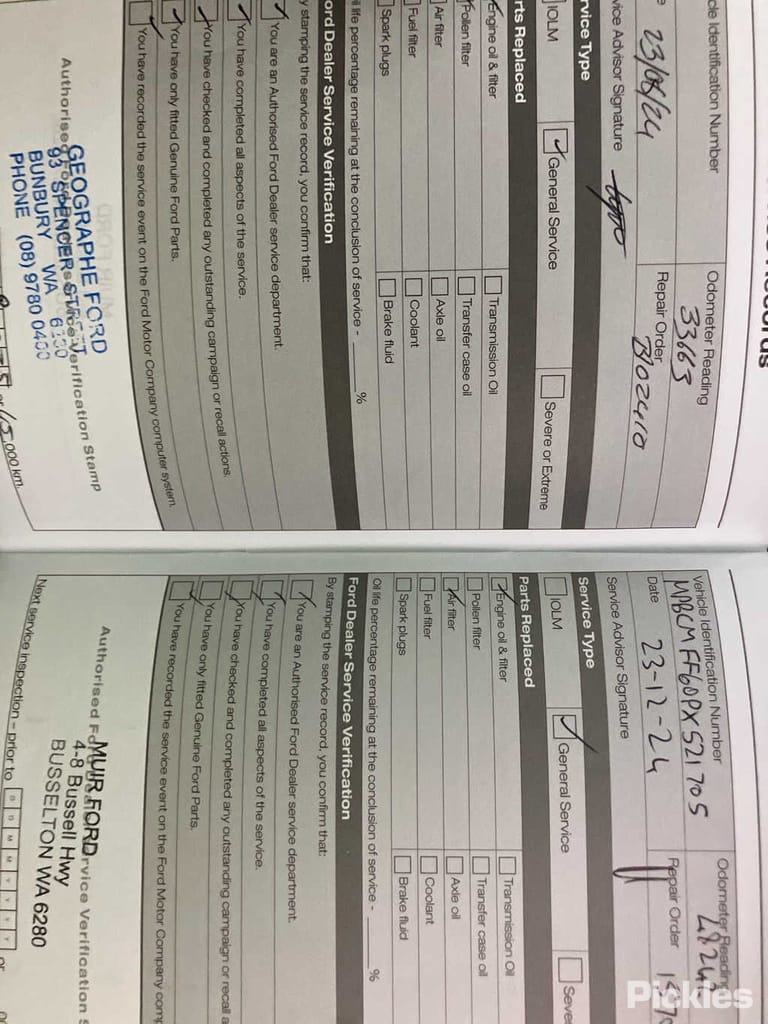 Records
cle Identification Number
Odometer Reading
33663
23/08/24
Repair Order
B102410
vice Advisor Signature
rvice Type
IOLM
General Service
Severe or Extreme
rts Replaced
Engine oil & filter
Transmission Oil
Pollen filter
Transfer case oil
Air filter
Axle oil
Fuel filter
Coolant
Spark plugs
Brake fluid
il life percentage remaining at the conclusion of service - %
ord Dealer Service Verification
y stamping the service record, you confirm that:
You are an Authorised Ford Dealer service department.
You have completed all aspects of the service.
You have checked and completed any outstanding campaign or recall actions.
You have only fitted Genuine Ford Parts.
You have recorded the service event on the Ford Motor Company computer system.
Authorised Ford Dealer Service Verification Stamp
GEOGRAPHE FORD
93 SPENCER STREET
BUNBURY WA 6230
PHONE (08) 9780 0400
or 45 000 km.
Vehicle Identification Number
Odometer Reading
MPBCMFF60PX521705
4824
Date
23-12-24
Repair Order
Service Advisor Signature
Service Type
IOLM
General Service
Sever
Parts Replaced
Engine oil & filter
Transmission Oil
Pollen filter
Transfer case oil
Air filter
Axle oil
Fuel filter
Coolant
Spark plugs
Brake fluid
Oil life percentage remaining at the conclusion of service - %
Ford Dealer Service Verification
By stamping the service record, you confirm that:
You are an Authorised Ford Dealer service department.
You have completed all aspects of the service.
You have checked and completed any outstanding campaign or recall a
You have only fitted Genuine Ford Parts.
You have recorded the service event on the Ford Motor Company comp
Authorised Ford Dealer Service Verification S
MUIR FORD
4-8 Bussell Hwy
BUSSELTON WA 6280
Next service inspection - prior to D D M M Y Y Y Y or
Pickles